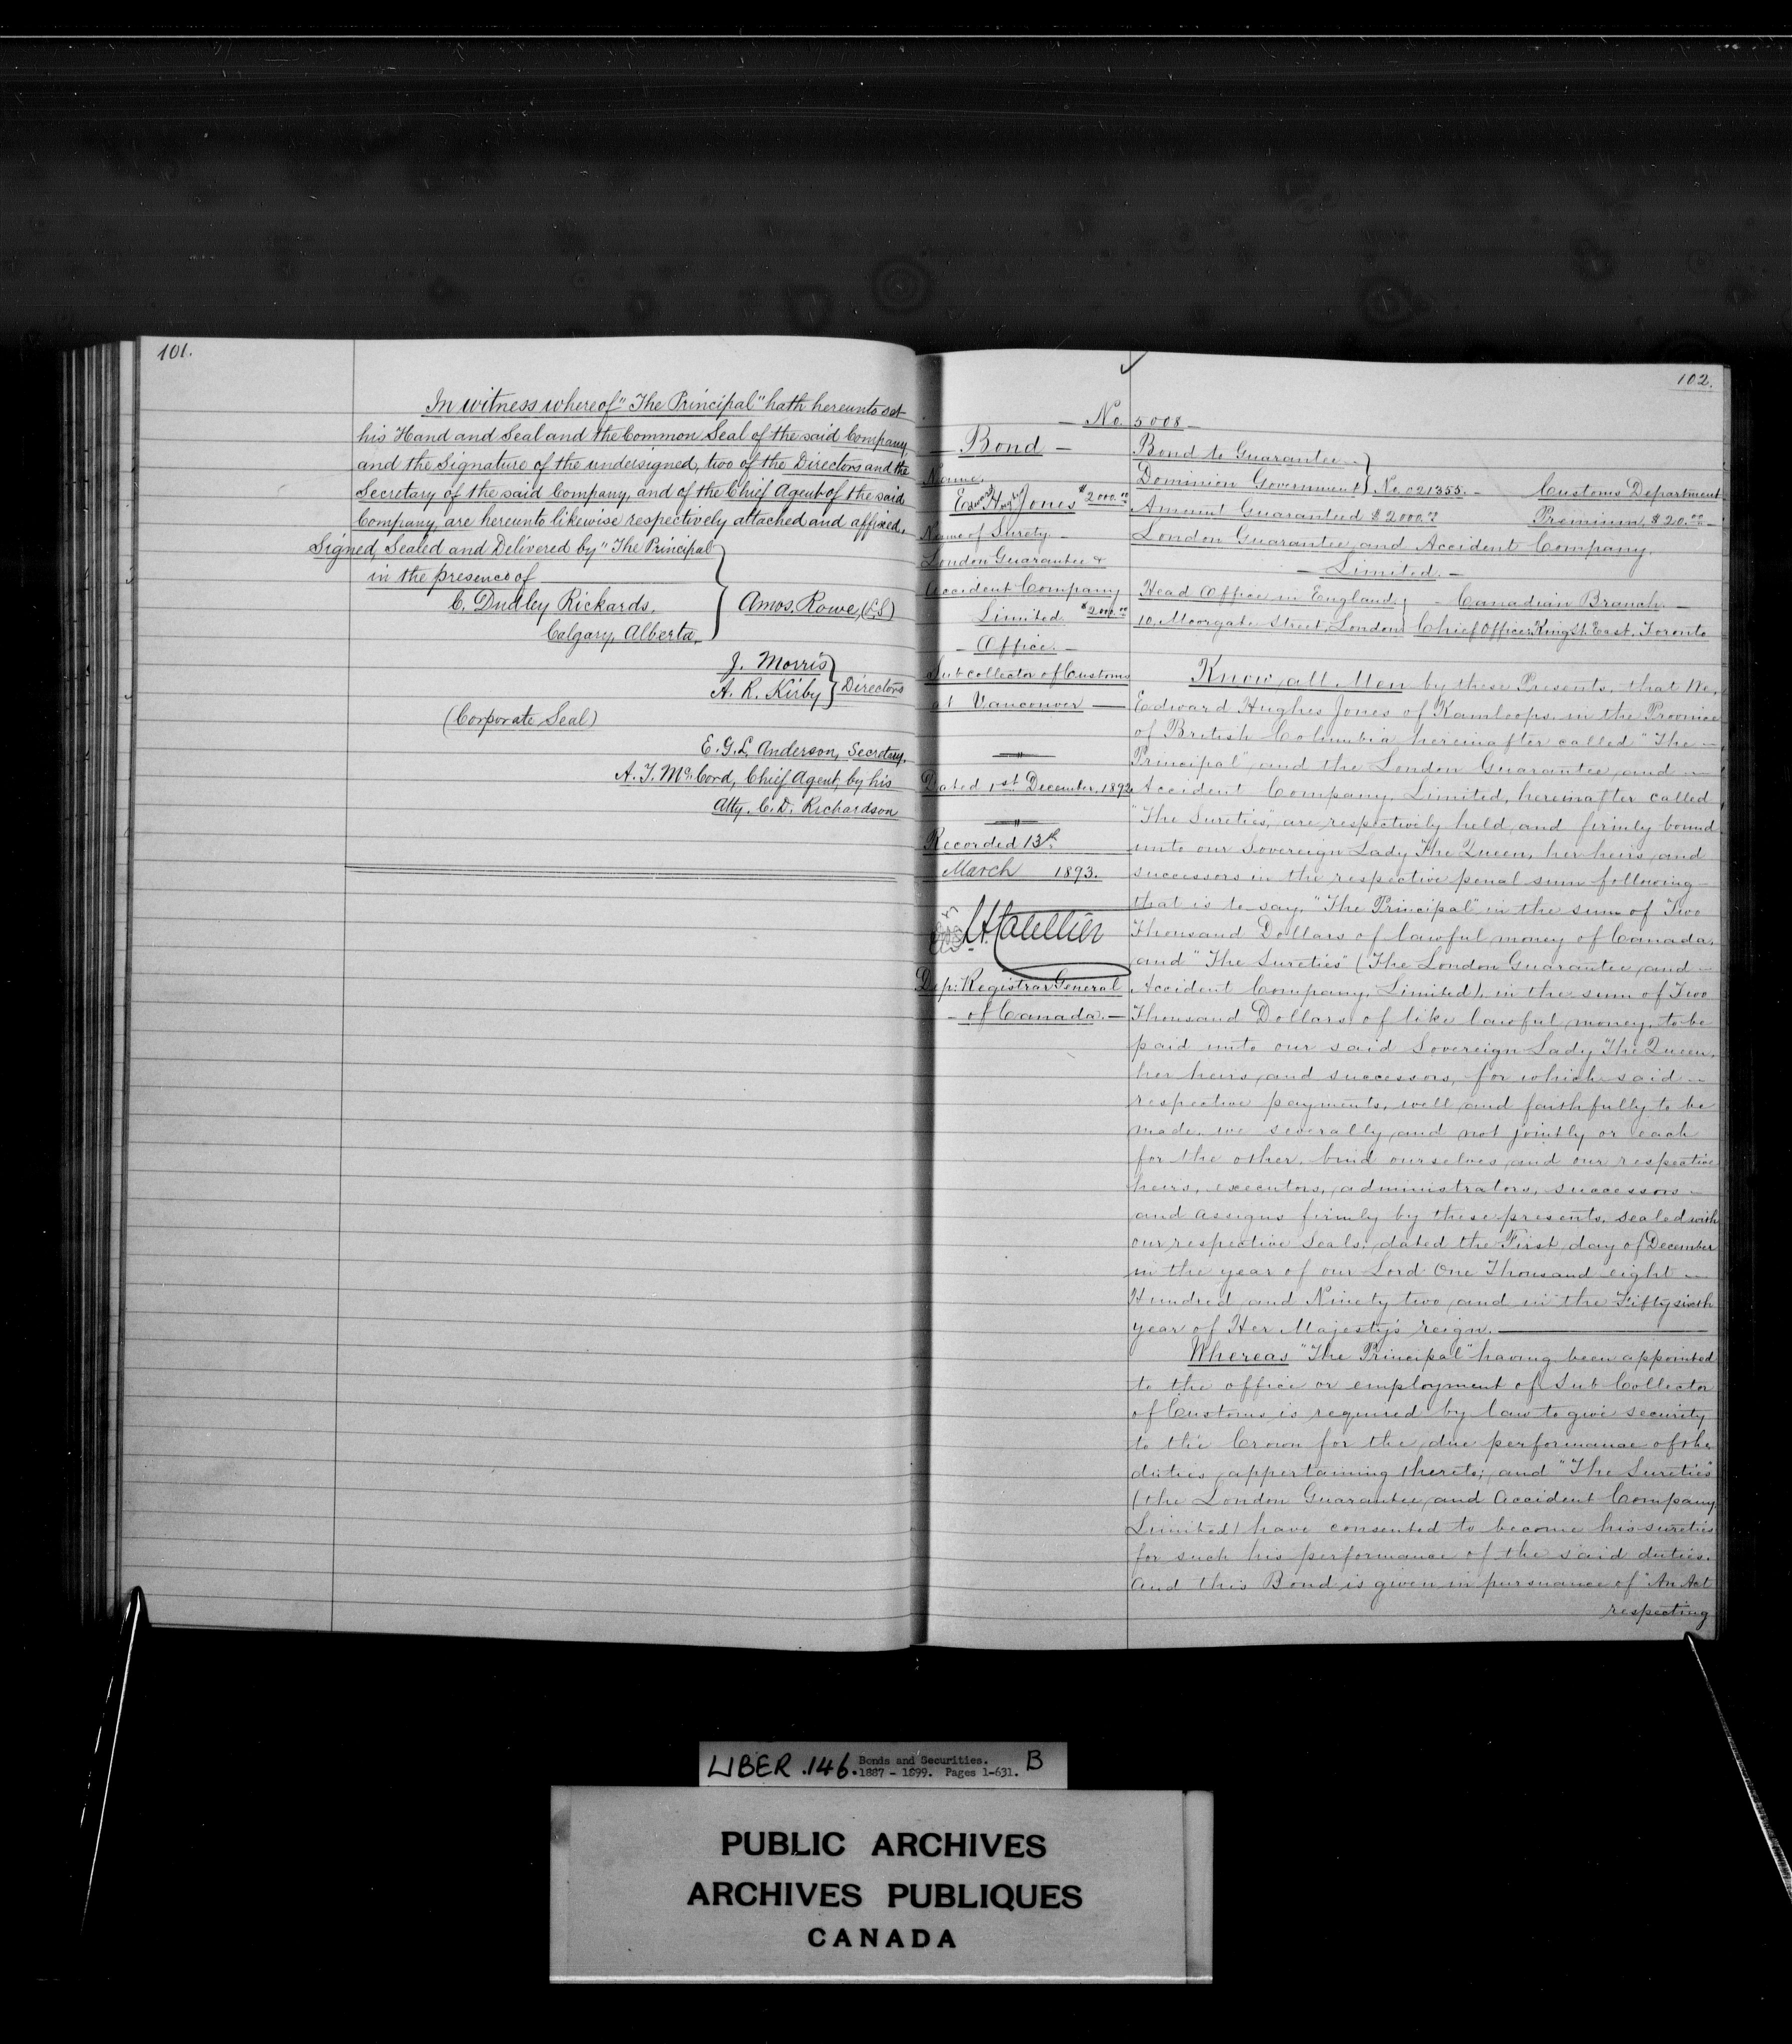 101.
In witness whereof "The Principal" hath hereunto set
his Hand and Seal and the Common Seal of the said Company,
and the Signature of the undersigned, two of the Directors and the
Secretary of the said Company, and of the Chief Agent of the said
Company, are hereunto likewise respectively attached and affixed.
Signed, Sealed and Delivered by "The Principal
in the presence of
C. Dudley Rickards.
Calgary, Alberta.
Amos. Rowe, (L.S)
J. Morris
A. R. Kirby
Directors
(Corporate Seal)
E. G. L. Anderson, Secretary.
A. T. Mc.Cord, Chief Agent, by his
Atty. C. D. Richardson
102.
No 5008
Bond
Name.
Edward Hughes Jones $2000.00
Name of Surety
London Guarantee &
Accident Company
Limited $2000.00
Office
Sub collector of Customs
at Vancouver
Dated 1st December, 1892
Recorded 13th
March 1893.
Dep: Registrar General
of Canada.
Bond to Guarantee
Dominion Government No. 021355. Customs Department
Amount Guaranteed $2000.00 Premium, $20.00
London Guarantee and Accident Company.
Limited.
Head Office in England, Canadian Branch
10. Moorgate Street, London Chief Office, King St. East. Toronto
Know all Men by these Presents, that We,
Edward Hughes Jones of Kamloops, in the Province
of British Columbia hereinafter called "The
Principal" and the London Guarantee and
Accident Company, Limited, hereinafter called
"The Sureties," are respectively held and firmly bound
unto our Sovereign Lady The Queen, her heirs and
successors in the respective penal sum following
that is to say, "The Principal" in the sum of Two
Thousand Dollars of lawful money of Canada,
and "The Sureties" (The London Guarantee and
Accident Company, Limited), in the sum of Two
Thousand Dollars of like lawful money, to be
paid unto our said Sovereign Lady The Queen,
her heirs and successors, for which said
respective payments, well and faithfully to be
made, we severally and not jointly or each
for the other, bind ourselves and our respective
heirs, executors, administrators, successors
and assigns firmly by these presents, sealed with
our respective Seals; dated the First day of December
in the year of our Lord One Thousand eight
Hundred and Ninety two and in the Fifty sixth
year of Her Majesty's reign.
Whereas "The Principal" having been appointed
to the office or employment of Sub Collector
of Customs is required by law to give security
to the Crown for the due performance of the
duties appertaining thereto; and "The Sureties"
(the London Guarantee and Accident Company
Limited) have consented to become his sureties
for such his performance of the said duties.
And this Bond is given in pursuance of "An Act
respecting
LIBER .146. Bonds and Securities. B
1887 - 1899. Pages 1-631.
PUBLIC ARCHIVES
ARCHIVES PUBLIQUES
CANADA